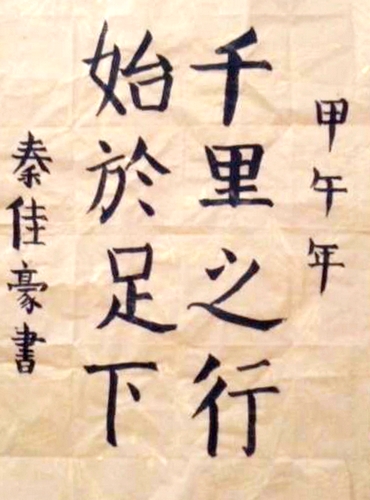 甲午年
千里之行
始於足下
秦佳豪書